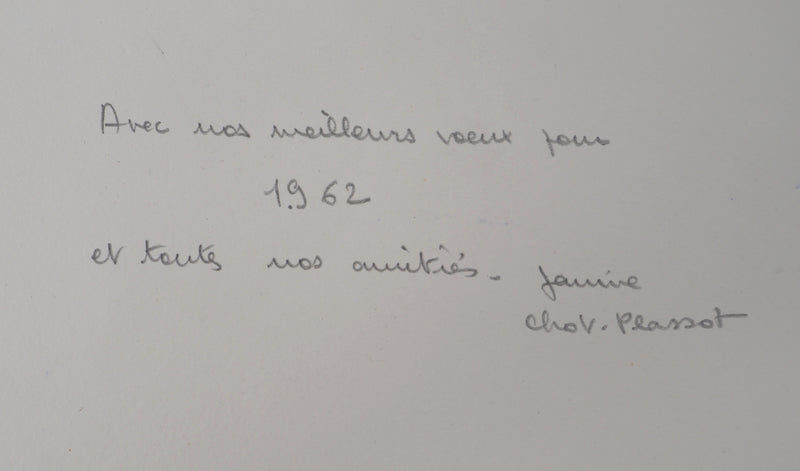 Avec nos meilleurs voeux pour
1962
et toutes nos amitiés. Janine
Chov. Plassot